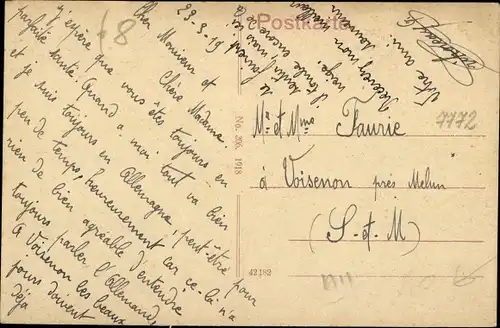 Postkarte
23-3-19
Cher Monsieur et
Chère Madame
J'y espère que vous êtes toujours en
parfaite santé Quand à moi tout va bien
et je suis toujours en Allemagne, peut-être pour
peu de temps, heureusement car ce-là n'a
rien de bien agréable d'entendre
toujours parler l'Allemand,
A Voisenon les beaux
jours doivent
déjà
Recevez mon
Votre ami
Mr et Mme Faurie
à Voisenon près Melun
(S-et-M)
7772
8
No. 356, 1918
42182